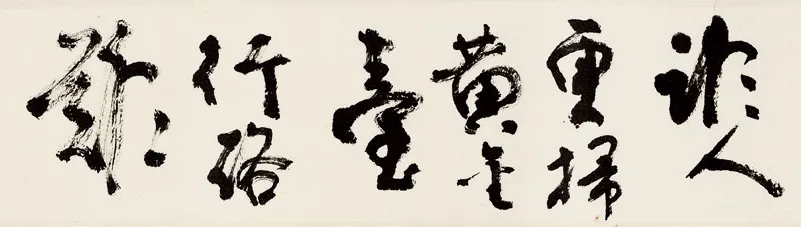 誰人
更掃
黄金
臺
行路
難